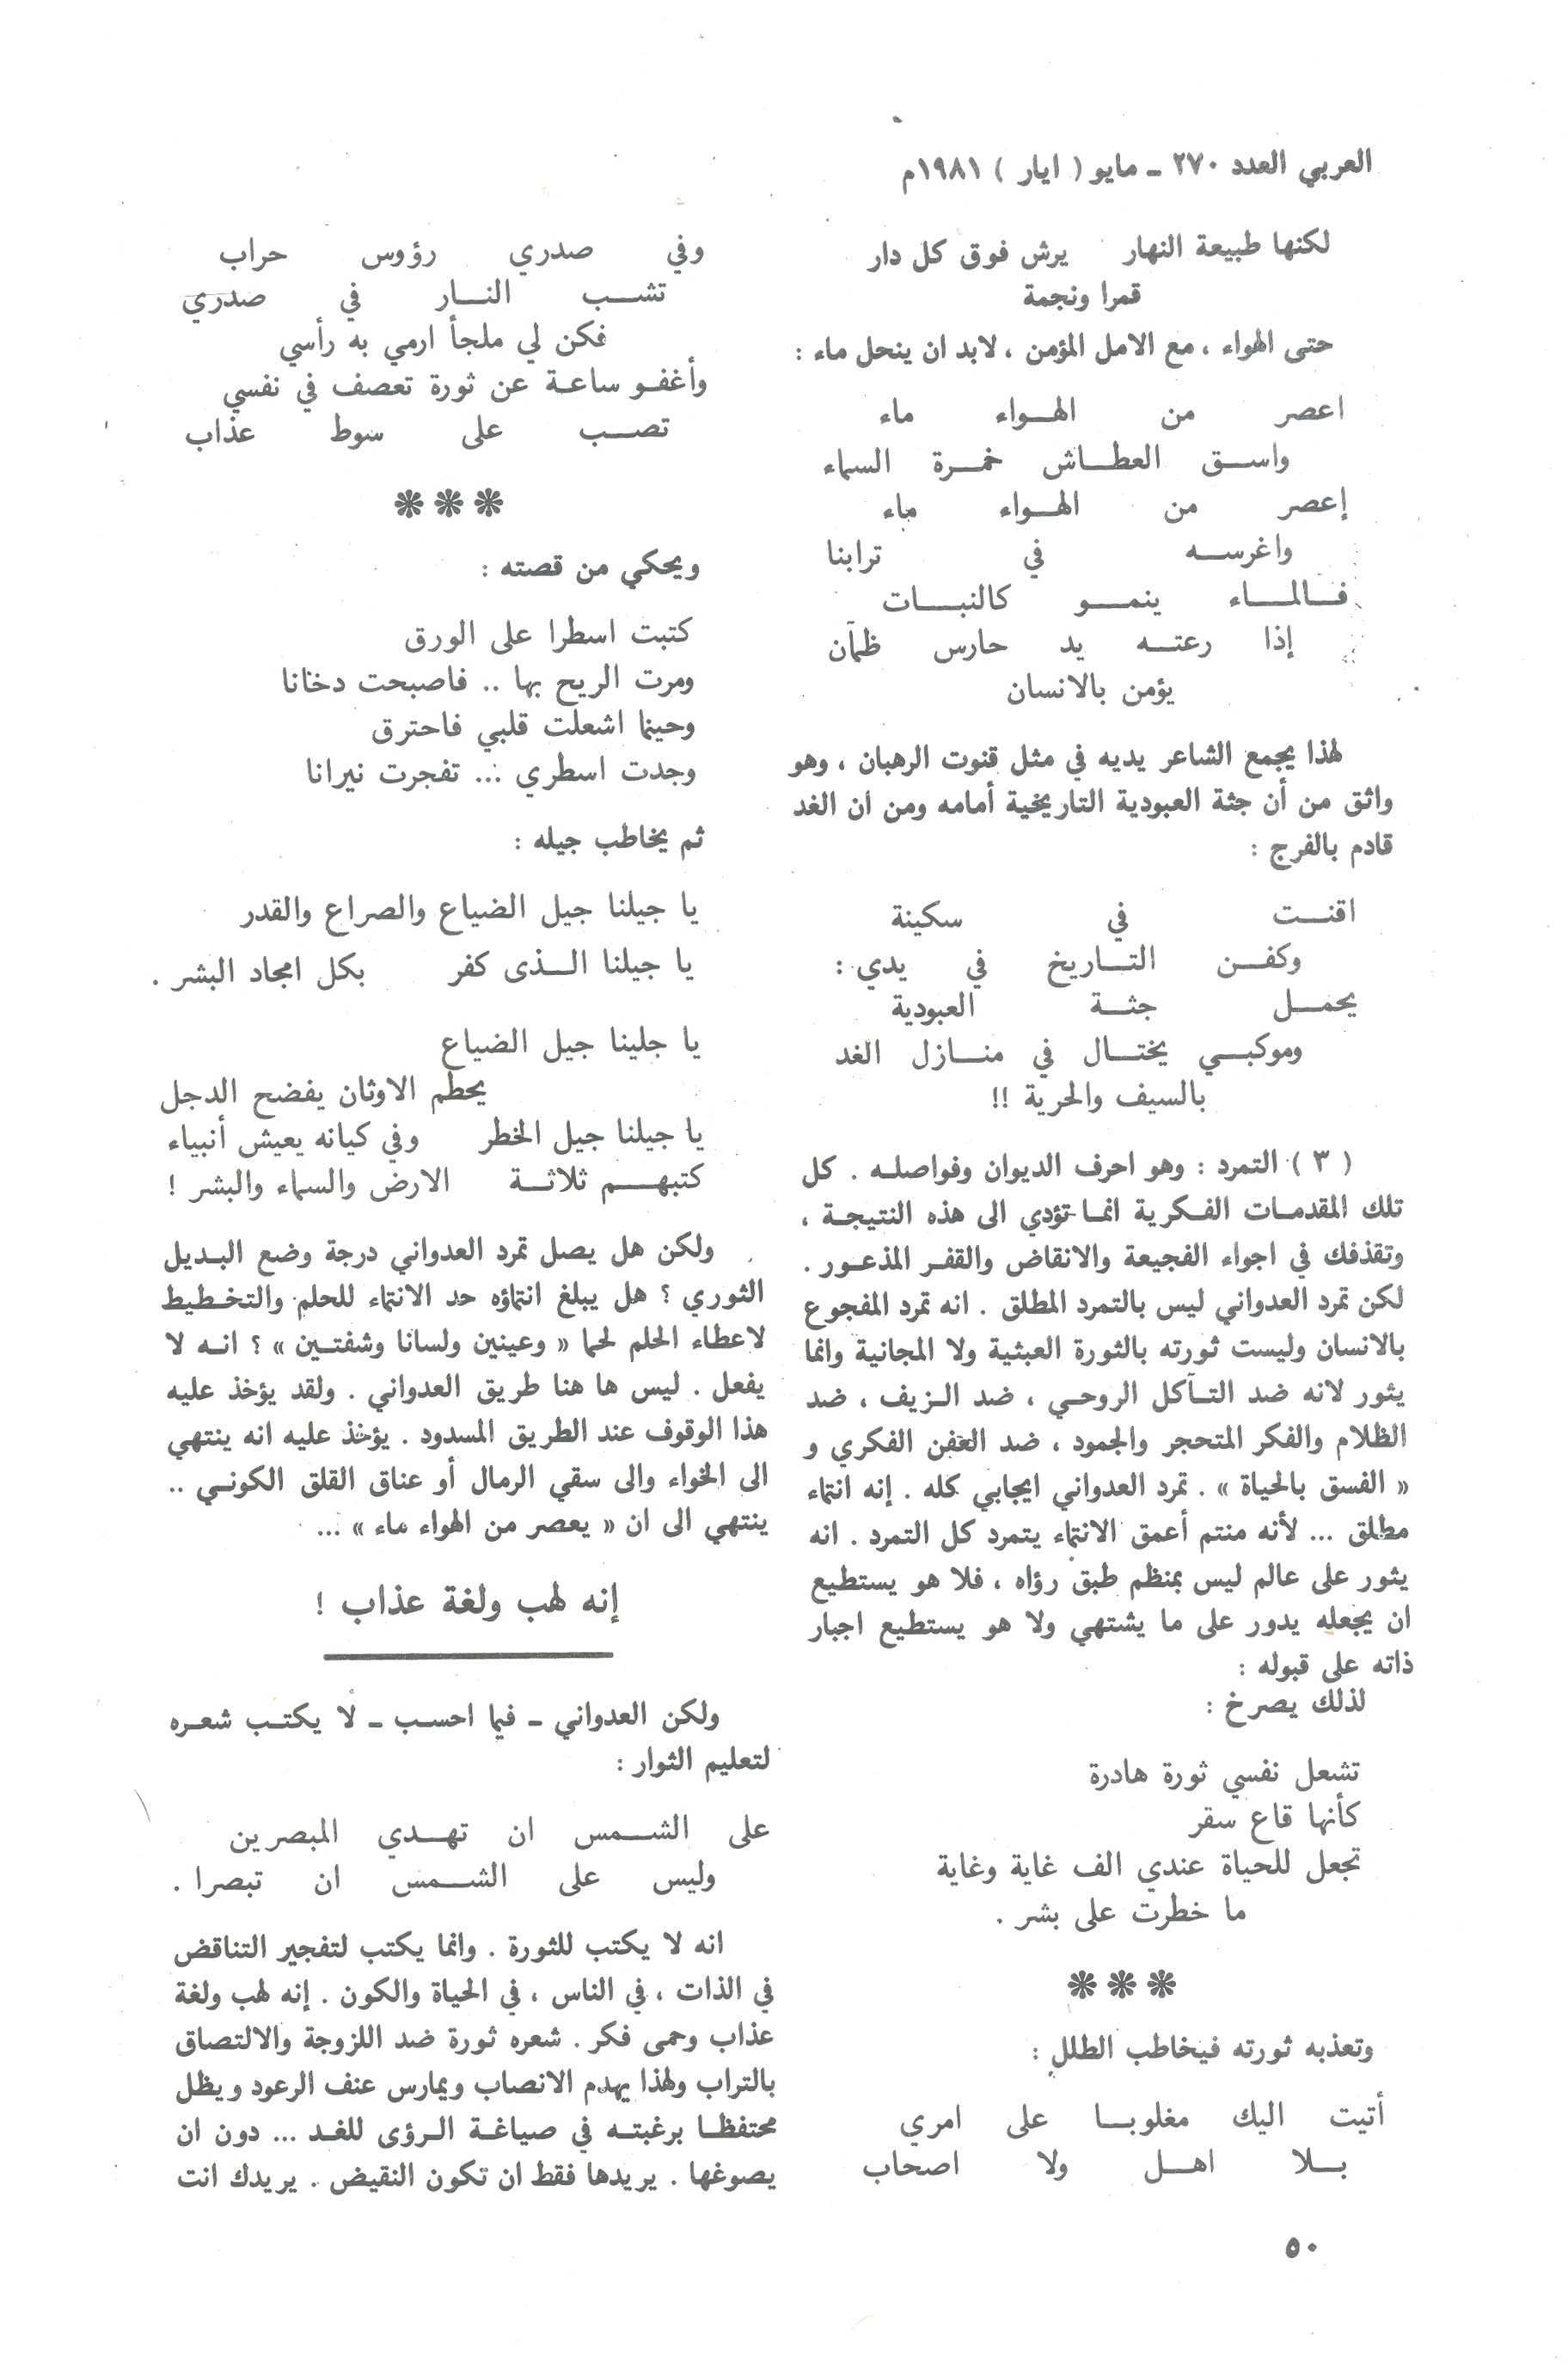 العربي العدد ٢٧٠ ـ مايو ( ايار ) ١٩٨١م
لكنها طبيعة النهار يرش فوق كل دار
قمرا ونجمة
حتى الهواء ، مع الامل المؤمن ، لابد ان ينحل ماء :
اعصر من الهـواء ماء
واسـق العطـاش خمـرة السماء
إعصر من الهـواء ماء
واغرسـه في ترابنا
فـالمـاء ينمـو كالنبـات
إذا رعتـه يد حارس ظمآن
يؤمن بالانسان
لهذا يجمع الشاعر يديه في مثل قنوت الرهبان ، وهو
واثق من أن جثة العبودية التاريخية أمامه ومن ان الغد
قادم بالفرج :
اقنـت في سكينة
وكفـن التـاريخ في يدي :
يحمـل جثـة العبودية
وموكبـي يختـال في منـازل الغد
بالسيف والحرية !!
( ٣ ) التمرد : وهو احرف الديوان وفواصلـه . كل
تلك المقدمـات الفـكرية انمـا تؤدي الى هذه النتيجـة ،
وتقذفك في اجواء الفجيعة والانقاض والقفـر المذعـور .
لكن تمرد العدواني ليس بالتمرد المطلق . انه تمرد المفجوع
بالانسان وليست ثورته بالثورة العبثية ولا المجانية وانما
يثور لانه ضد التـآكل الروحـي ، ضد الـزيف ، ضد
الظلام والفكر المتحجر والجمود ، ضد العفن الفكري و
« الفسق بالحياة » . تمرد العدواني ايجابي كله . إنه انتماء
مطلق ... لأنه منتم أعمق الانتماء يتمرد كل التمرد . انه
يثور على عالم ليس بمنظم طبق رؤاه ، فلا هو يستطيع
ان يجعله يدور على ما يشتهي ولا هو يستطيع اجبار
ذاته على قبوله :
لذلك يصرخ :
تشعل نفسي ثورة هادرة
كأنها قاع سقر
تجعل للحياة عندي الف غاية وغاية
ما خطرت على بشر .
***
وتعذبه ثورته فيخاطب الطلل :
أتيت اليك مغلوبـا على امري
بـلا اهـل ولا اصحاب
وفي صدري رؤوس حراب
تشـب النـار في صدري
فكن لي ملجأ ارمي به رأسي
وأغفـو ساعـة عن ثورة تعصف في نفسي
تصـب على سوط عذاب
***
ويحكي من قصته :
كتبت اسطرا على الورق
ومرت الريح بها .. فاصبحت دخانا
وحينما اشعلت قلبي فاحترق
وجدت اسطري ... تفجرت نيرانا
ثم يخاطب جيله :
يا جيلنا جيل الضياع والصراع والقدر
يا جيلنا الـذى كفر بكل امجاد البشر .
يا جلينا جيل الضياع
يحطم الاوثان يفضح الدجل
يا جيلنا جيل الخطر وفي كيانه يعيش أنبياء
كتبهـم ثلاثـة الارض والسماء والبشر !
ولكن هل يصل تمرد العدواني درجة وضع البـديل
الثوري ؟ هل يبلغ انتماؤه حد الانتماء للحلم والتخـطيط
لاعطاء الحلم لحما « وعينين ولسانا وشفتـين » ؟ انـه لا
يفعل . ليس ها هنا طريق العدواني . ولقد يؤخذ عليه
هذا الوقوف عند الطريق المسدود . يؤخذ عليه انه ينتهي
الى الخواء والى سقي الرمال أو عناق القلق الكونـي ..
ينتهي الى ان « يعصر من الهواء ماء » ...
إنه لهب ولغة عذاب !
ولكن العدواني ـ فيما احسب ـ لا يكتـب شعـره
لتعليم الثوار :
على الشـمس ان تهـدي المبصرين
وليس على الشـمس ان تبصرا .
انه لا يكتب للثورة . وانما يكتب لتفجير التناقض
في الذات ، في الناس ، في الحياة والكون . إنه لهب ولغة
عذاب وحمى فكر . شعره ثورة ضد اللزوجة والالتصاق
بالتراب ولهذا يهدم الانصاب ويمارس عنف الرعود ويظل
محتفظـا برغبتـه في صياغـة الـرؤى للغـد ... دون ان
يصوغها . يريدها فقط ان تكون النقيض . يريدك انت
٥٠